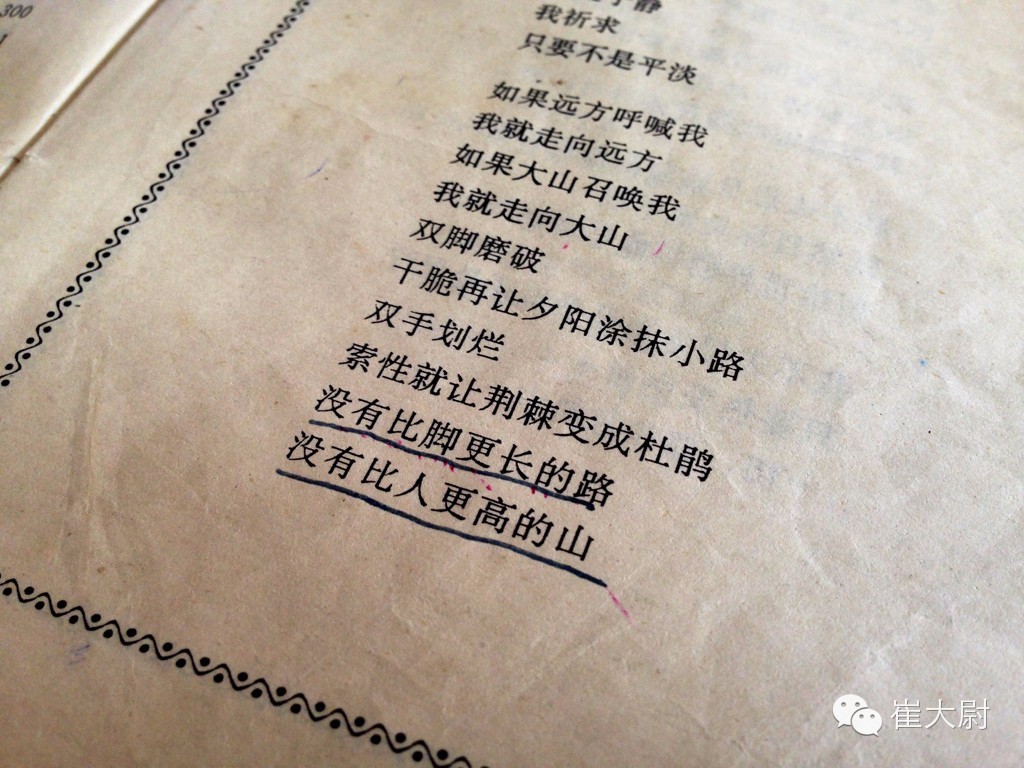 300
静
我祈求
只要不是平淡
如果远方呼喊我
我就走向远方
如果大山召唤我
我就走向大山
双脚磨破
干脆再让夕阳涂抹小路
双手划烂
索性就让荆棘变成杜鹃
没有比脚更长的路
没有比人更高的山
崔大尉